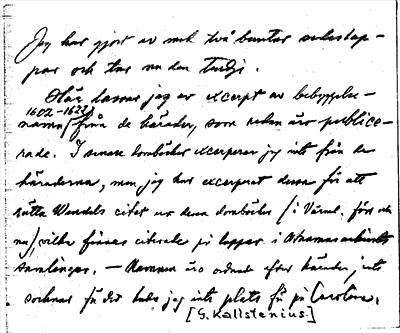 Jag har gjort av med två buntar
par och tar nu den tredje.
Här lämnar jag ex excerpt av bebyggelse-
1602-1622
namn från de härader, som redan äro publice-
rade. I senare domböcker excerperar jag inte från de
häraderna, men jag har excerperat dessa för att
rätta Wendels citat ur dessa domböcker (i Värml. förr och
nu), vilka finnas citerade på lappar i Ortnamnsarkivets
samlingar. — Namnen äro ordnade efter härader, inte
socknar för det hade jag inte plats för på Carolina.
[G. Kallstenius]